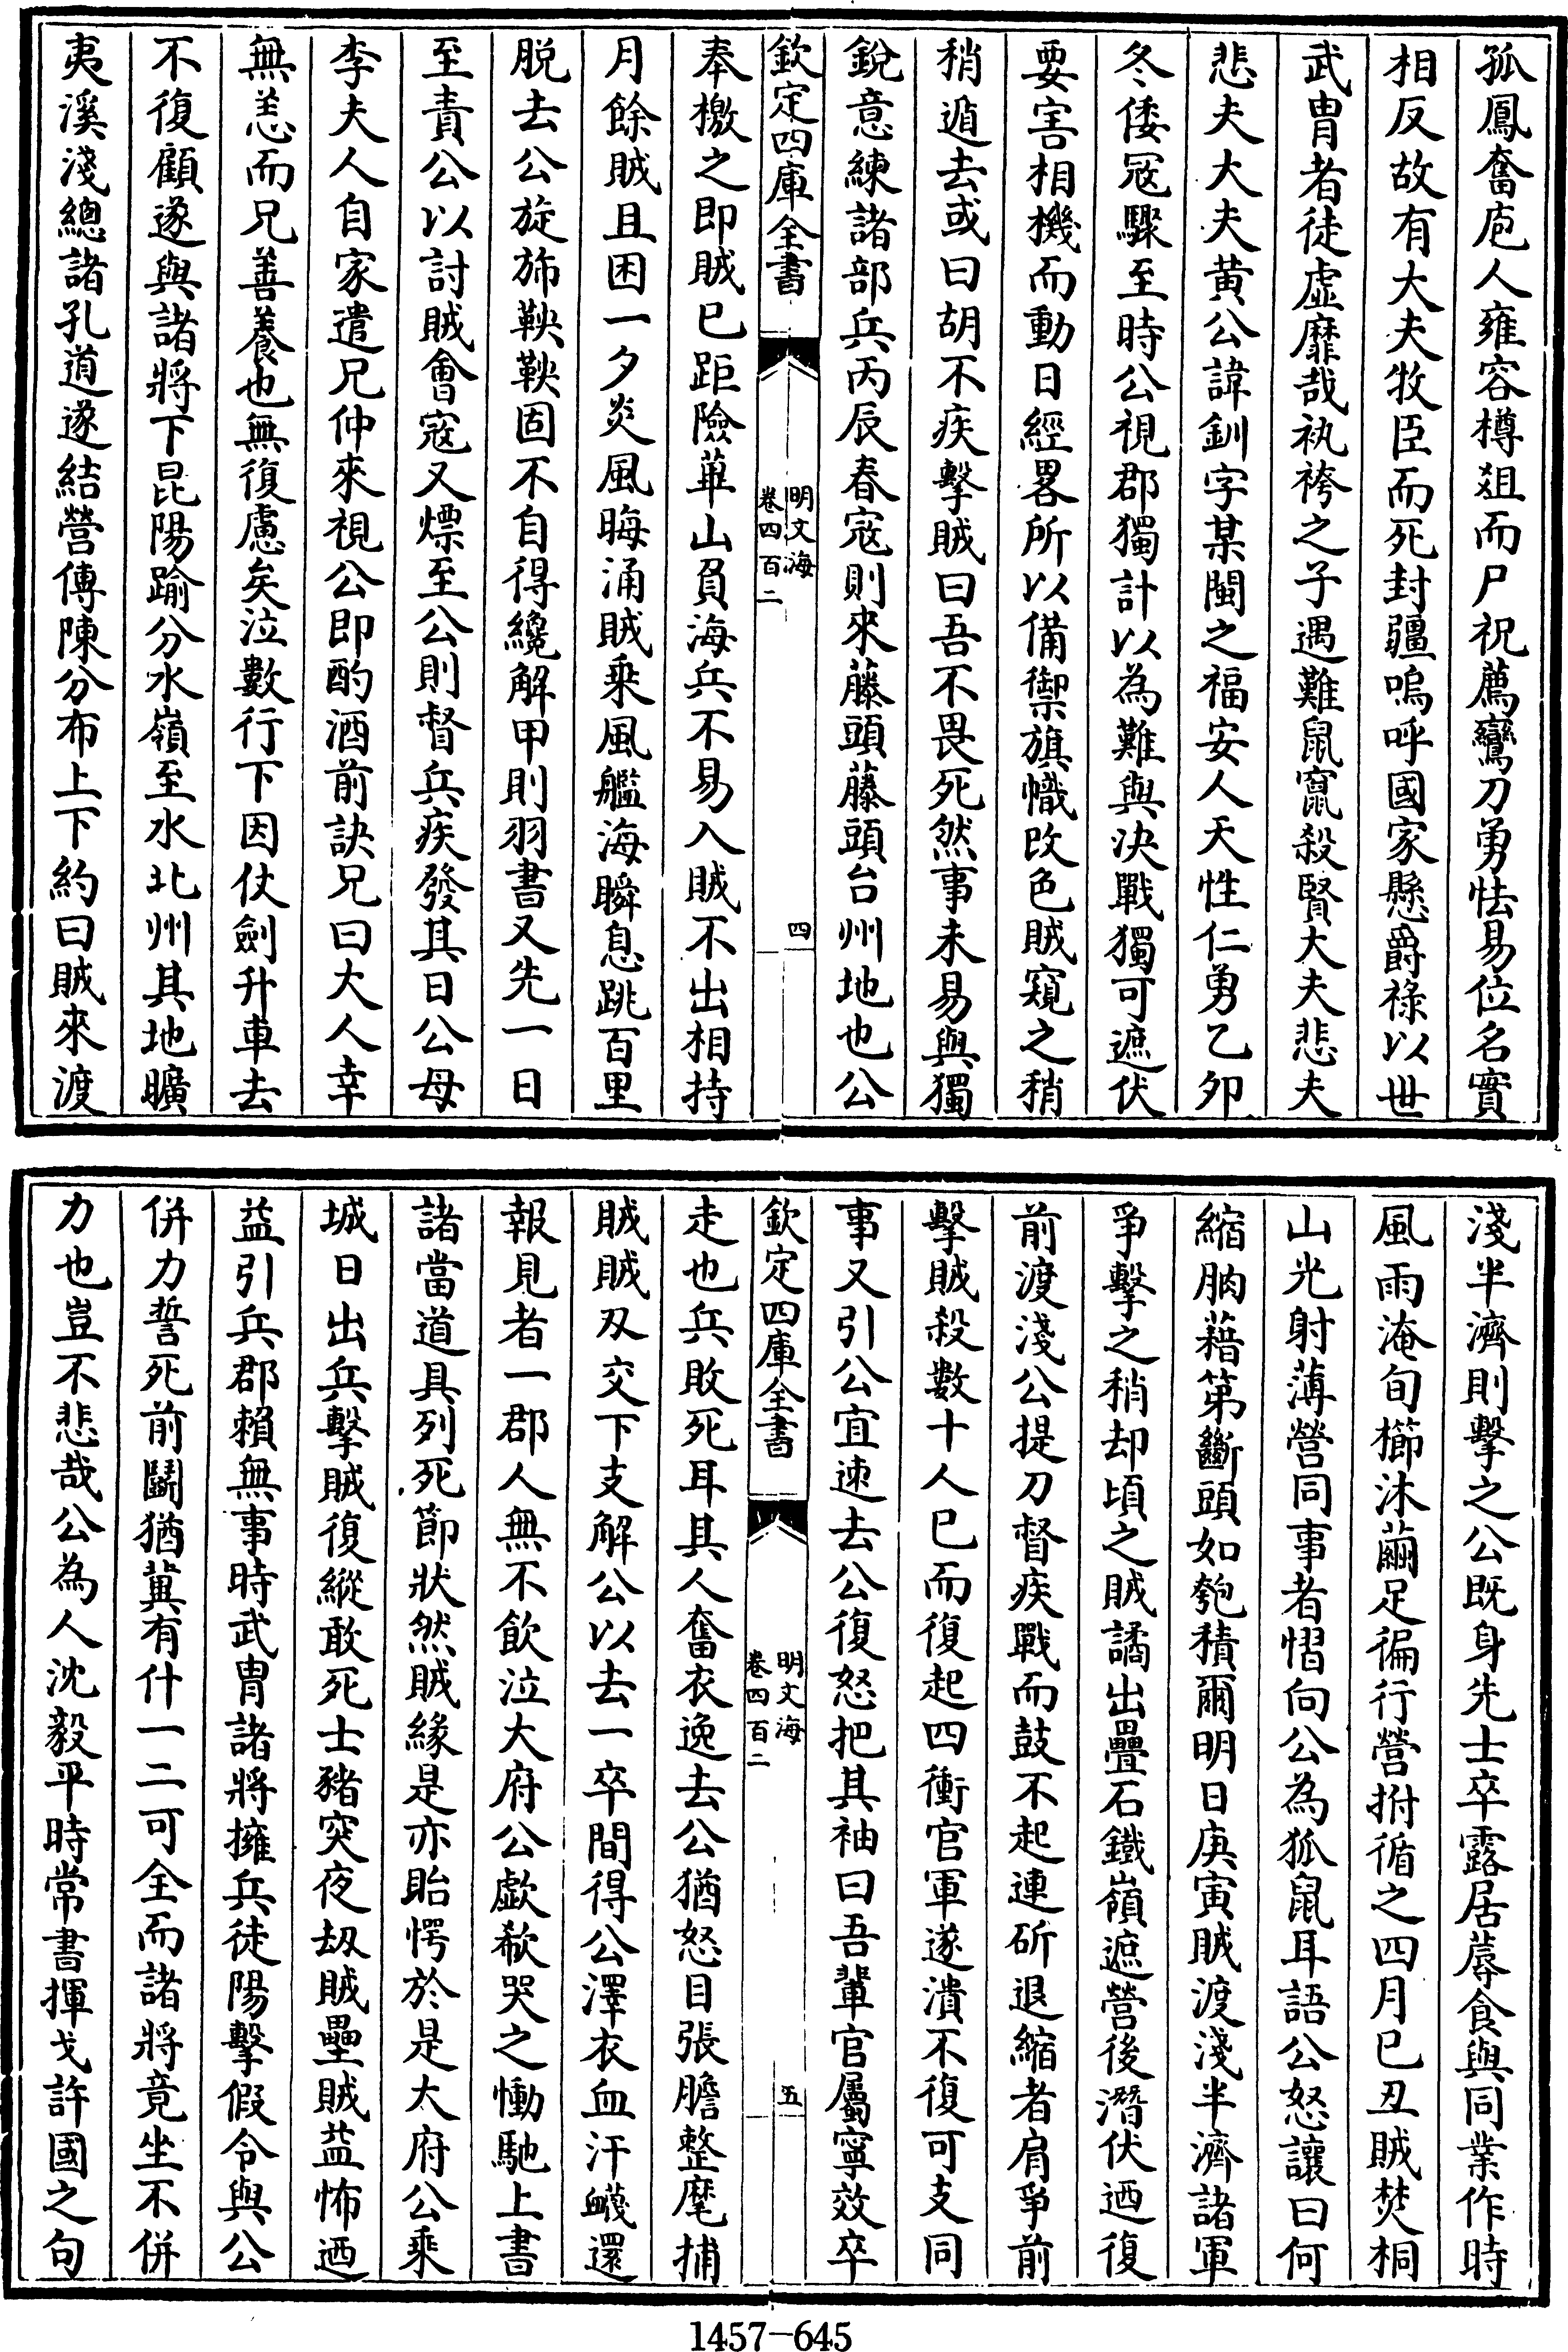 孤鳳奮庖人雍容樽俎而尸祝薦鸞刀勇怯易位名實
相反故有大夫牧臣而死封疆嗚呼國家懸爵祿以世
武胄者徒虛靡哉紈袴之子遇難鼠竄殺賢大夫悲夫
悲夫大夫黃公諱釧字某閩之福安人天性仁勇乙夘
冬倭寇驟至時公視郡獨計以為難與決戰獨可遮伏
要害相機而動日經畧所以備禦旗幟改色賊窺之稍
稍遁去或曰胡不疾擊賊曰吾不畏死然事未易與獨
銳意練諸部兵丙辰春寇則來藤頭藤頭台州地也公
欽定四庫全書
明文海
卷四百二
四
奉檄之即賊已距險菫山負海兵不易入賊不出相持
月餘賊且困一夕炎風晦涌賊乗風艦海瞬息跳百里
脱去公旋斾鞅鞅固不自得纔解甲則羽書又先一日
至責公以討賊會寇又熛至公則督兵疾發其日公母
李夫人自家遣兄仲來視公即酌酒前訣兄曰大人幸
無恙而兄善養也無復慮矣泣數行下因仗劍升車去
不復顧遂與諸將下昆陽踰分水嶺至水北州其地曠
夷溪淺總諸孔道遂結營傅陳分布上下約曰賊來渡
淺半濟則擊之公既身先士卒露居蓐食與同業作時
風雨淹旬櫛沐繭足徧行營拊循之四月已丑賊焚桐
山光射薄營同事者慴向公為狐鼠耳語公怒讓曰何
縮朒藉第斷頭如匏積爾明日庚寅賊渡淺半濟諸軍
爭擊之稍却頃之賊譎出疊石鐵嶺遮營後潛伏迺復
前渡淺公提刀督疾戰而鼓不起連斫退縮者肩爭前
擊賊殺數十人已而復起四衝官軍遂潰不復可支同
事又引公宜速去公復怒把其袖曰吾輩官屬寧效卒
欽定四庫全書
明文海
卷四百二
五
走也兵敗死耳其人奮衣逸去公猶怒目張膽整麾捕
賊賊刄交下支解公以去一卒間得公澤衣血汗衊還
報見者一郡人無不飲泣大府公歔欷哭之慟馳上書
諸當道具列死節狀然賊緣是亦眙愕於是大府公乘
城日出兵擊賊復縱敢死士豬突夜刼賊壘賊益怖迺
益引兵郡賴無事時武胄諸將擁兵徒陽擊假令與公
併力誓死前鬭猶冀有什一二可全而諸將竟坐不併
力也豈不悲哉公為人沈毅平時常書揮戈許國之句
1457-645